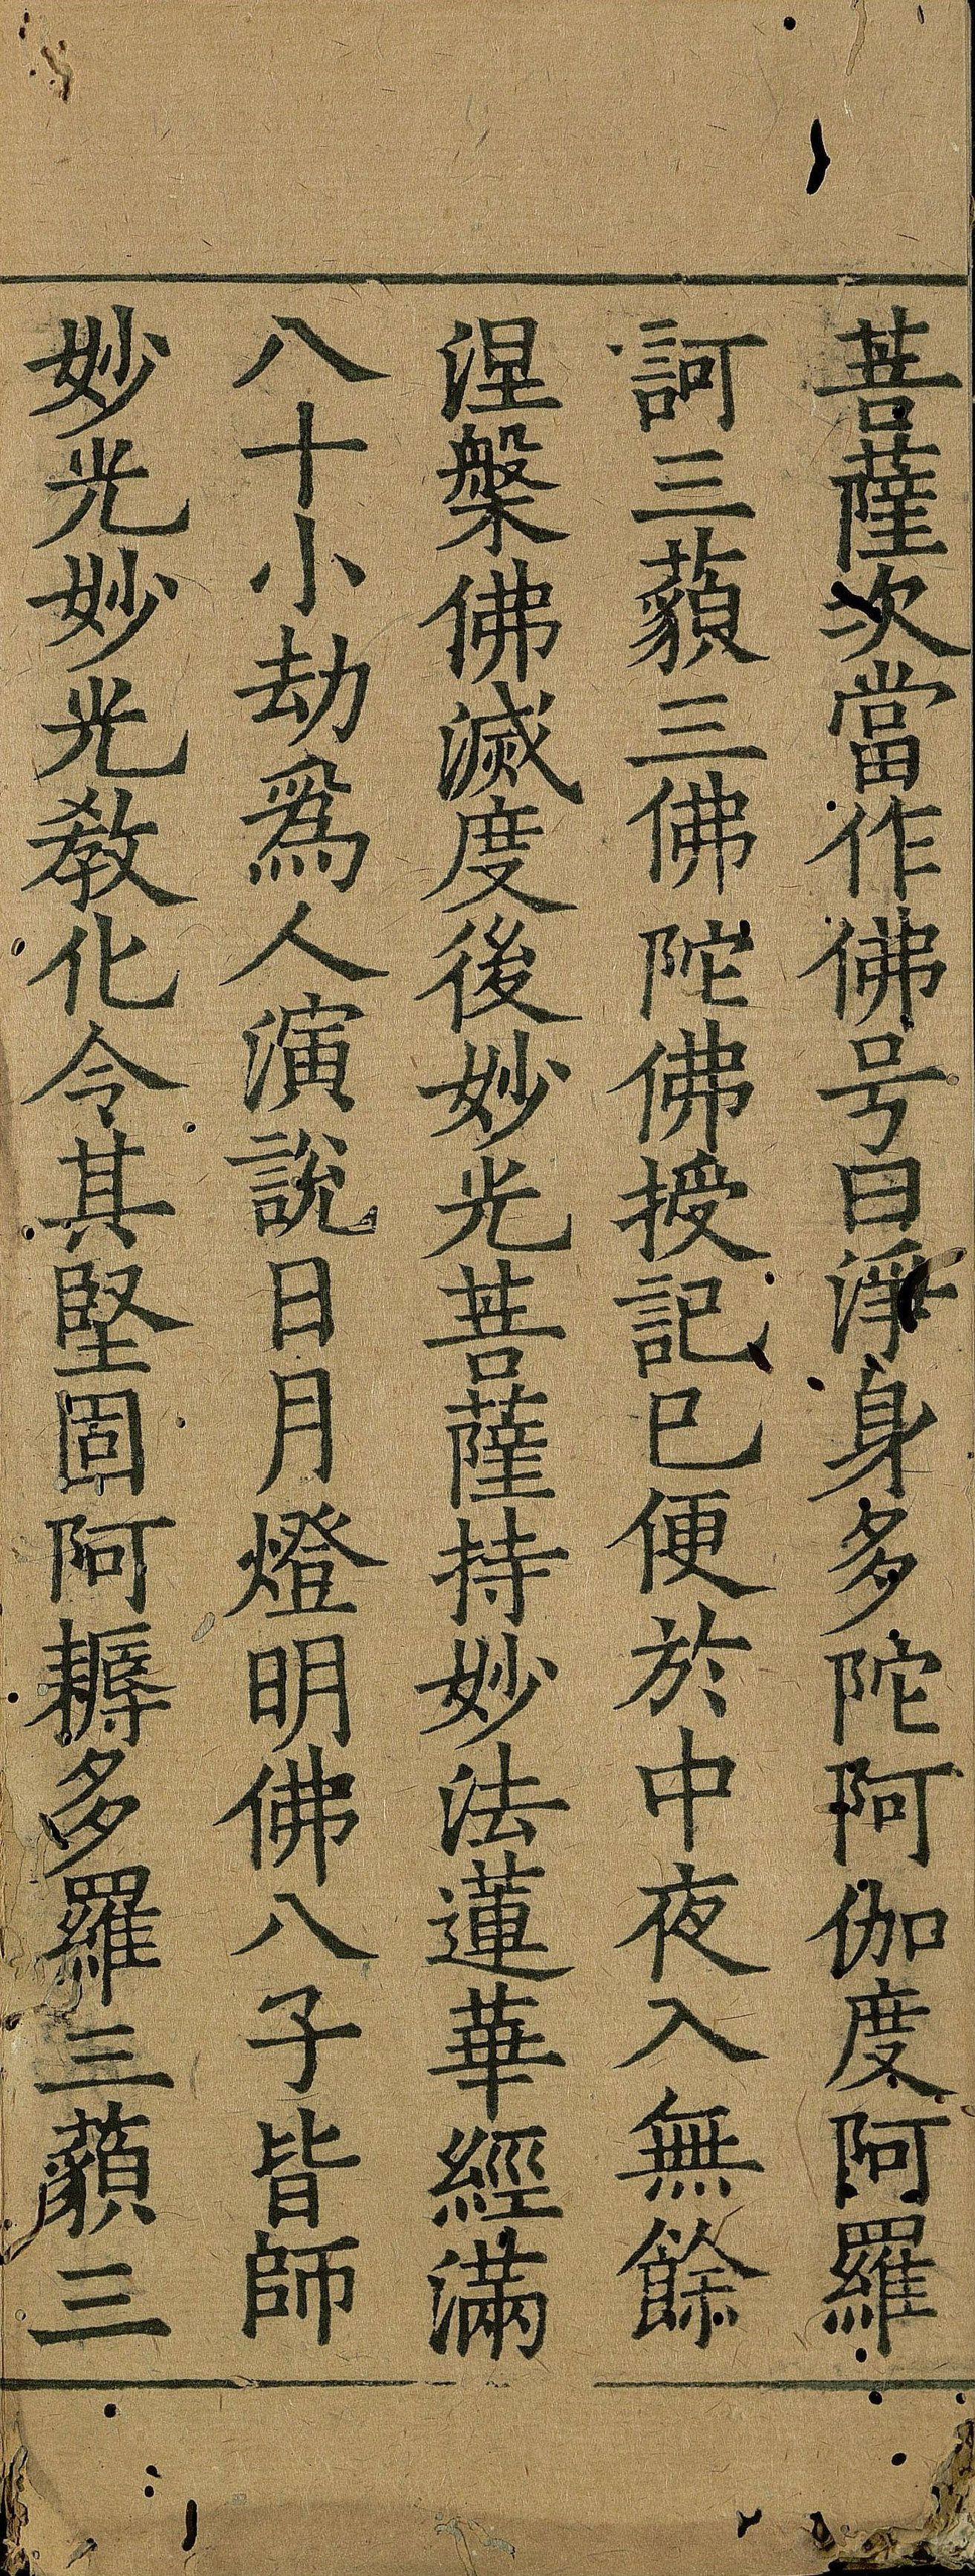 菩薩次當作佛号曰淨身多陀阿伽度阿羅
訶三藐三佛陀佛授記已便於中夜入無餘
涅槃佛滅度後妙光菩薩持妙法蓮華經滿
八十小劫爲人演說日月燈明佛八子皆師
妙光妙光教化令其堅固阿耨多羅三藐三